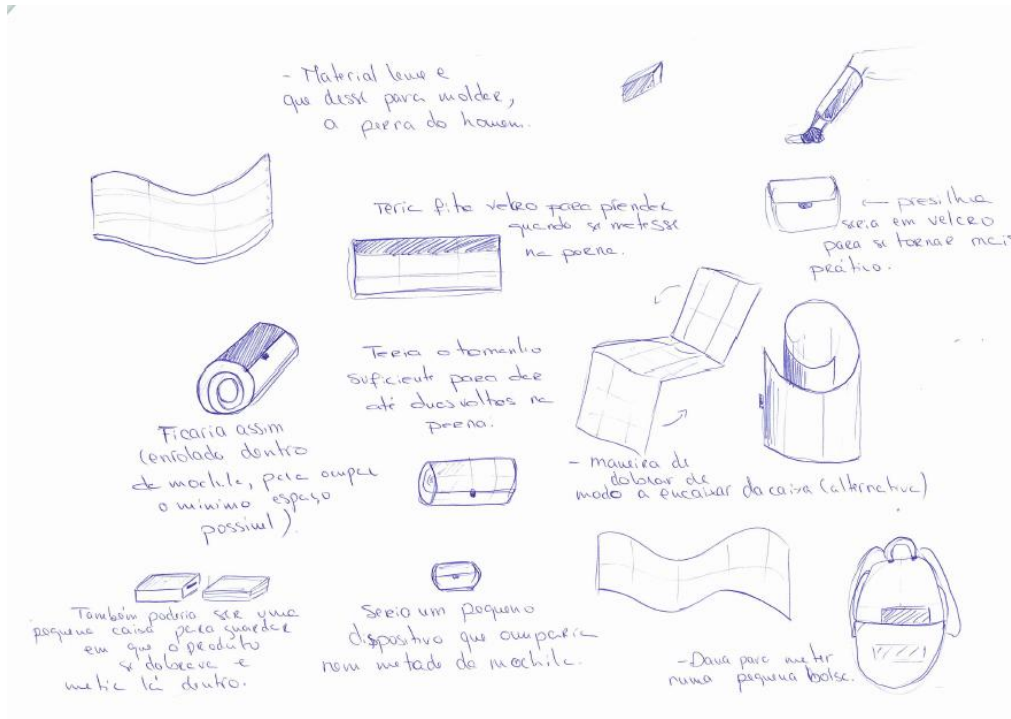 - Material leve e
que desse para molder,
a perna do homem.
← presilha
seria em velcro
para se tornar mais
prático.
Teria fita velcro para prender
quando se metesse
na perna.
Teria o tamanho
suficiente para dar
até duas voltas na
perna.
Ficaria assim
(enrolado dentro
da mochila, para ocupar
o minimo espaço
possivel).
- maneira de
dobrar de
modo a encaixar da caixa (alternativa)
Também poderia ser uma
pequena caixa para guardar
em que o produto
se dobrava e
metia lá dentro.
Seria um pequeno
dispositivo que ocuparia
nem metade da mochila.
- Dava para meter
numa pequena bolsa.